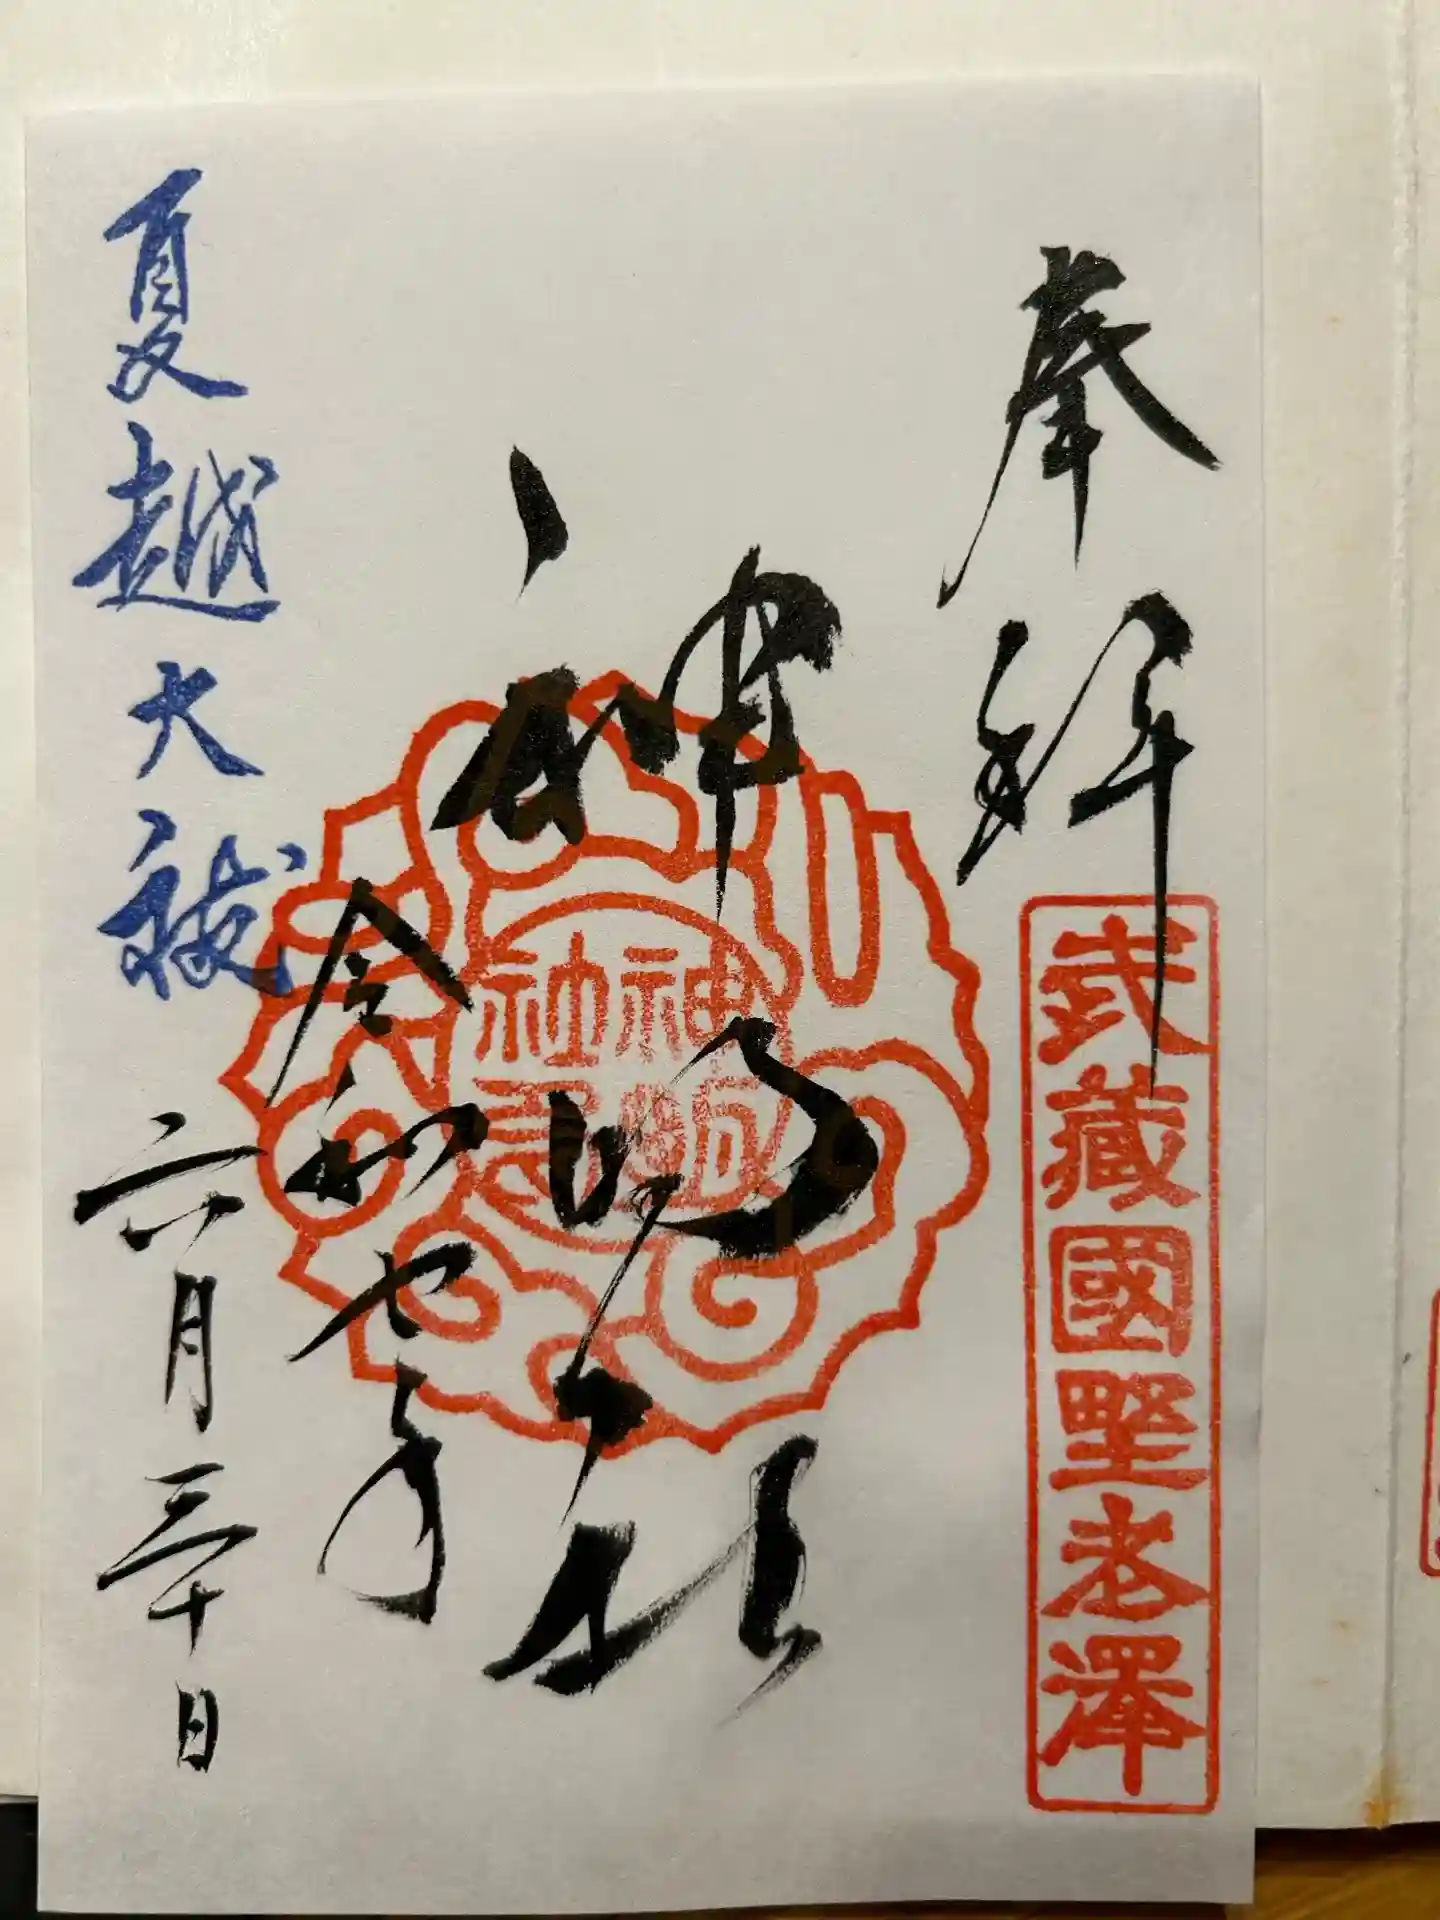 奉拝
武藏國野老澤
神明社
令和七年
六月三十日
夏越大祓